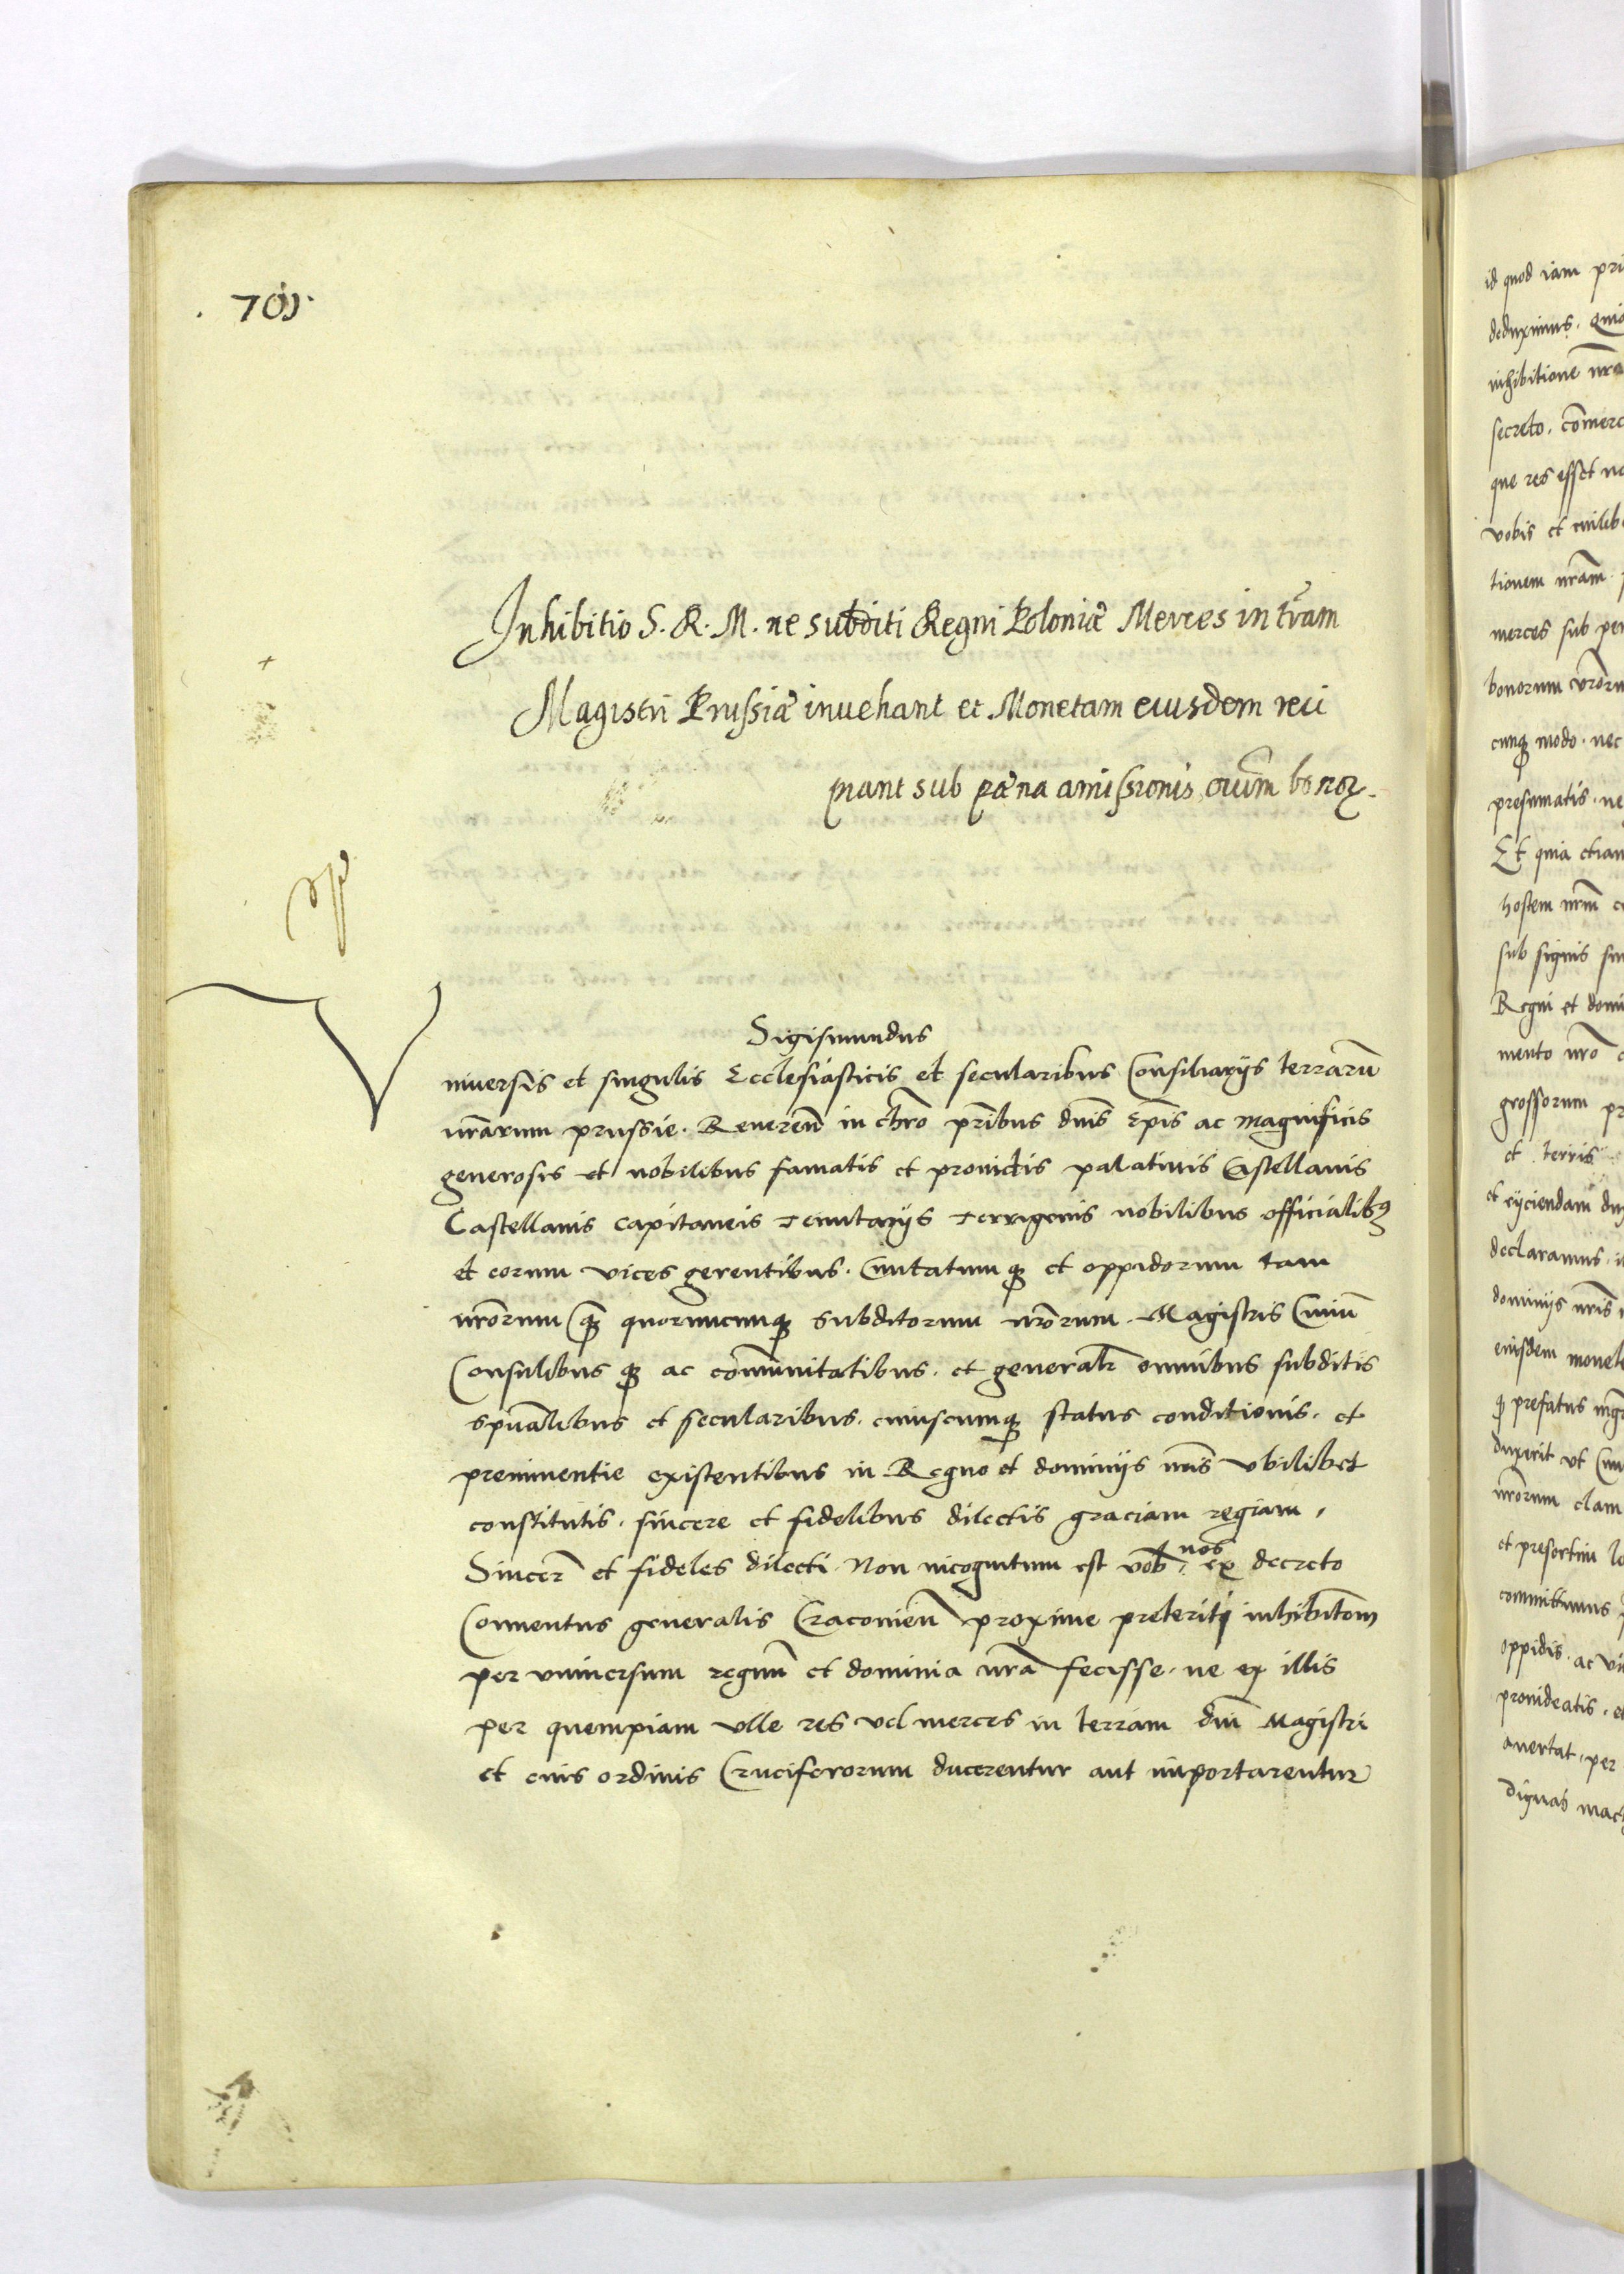 701
Inhibitio S. R. M. ne subditi Regni Poloniæ Merces in tr̃am
Magistri Prussiæ inuehant et Monetam eiusdem reci
piant sub pœna amissionis om̃ium bonoꝝ.
Sigismundus
Vniuersis et singulis Ecclesiasticis et secularibus Consiliarijs terrarũ
nr̃arum prussie. Reueren̄ in chr̃o pr̃ibus dnĩs Ep̃is ac magnificis
generosis et nobilibus famatis et prouidis palatinis Castellanis
Castellanis capitaneis tenutarijs terrigenis nobilibus officialibꝫ
et eorum vices gerentibus. Ciuitatum qꝫ et oppidorum tam
nr̃orum qꝫ quorumcumqꝫ subditorum nr̃orum. Magistris Ciuiũ
Consulibus qꝫ ac com̃unitatibus. et generalr̃ omnibus subditis
spũalibus et secularibus. cuiuscumqꝫ status conditionis. et
preminentie existentibus in Regno et dominijs nr̃is vbilibet
constitutis. sincere et fidelibus dilectis graciam regiam.
Sincerẽ et fideles dilecti. Non incognitum est vob̃. nos ex decreto
Conuentus generalis Cracouien̄ proxime preteriti inhibitom̃
per vniuersum regnũ et dominia nr̃a fecisse. ne ex illis
per quempiam vlle res vel merces in terram dnĩ Magistri
et eius ordinis Cruciferorum ducerentur aut importarentur
id quod iam pri
deduximus. Qui
inhibitionẽ nr̃a
secreto. com̃erc
que res esset no
vobis et cuilib
tionem nr̃am.
merces sub pe
bonorum vr̃oru
cunqꝫ modo. nec
presumatis. ne
Et quia etiam
hostem nr̃m
sub signis su
Regni et domi
mento nr̃o
grossorum pr
et terris
et eijciendam du
declaramus. i
dominijs nr̃is
eiusdem monete
qꝫ prefatus mg̃r
duxerit vt
nr̃orum clam
et presertim
committimus
oppidis. ac vi
prouideatis. e
auertat. per
dignas mac